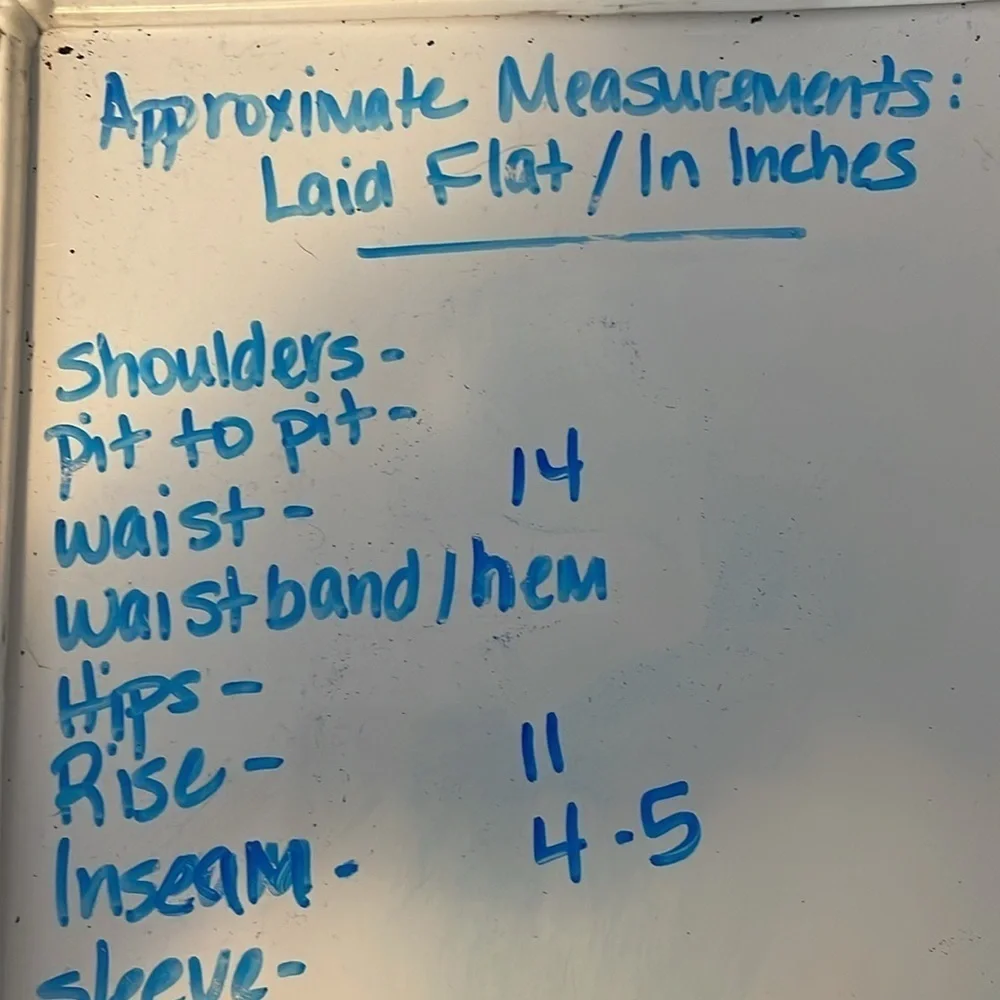 Approximate Measurements:
Laid Flat / In Inches
Shoulders -
pit to pit -
waist - 14
waistband / hem
Hips -
Rise - 11
Inseam - 4.5
sleeve -